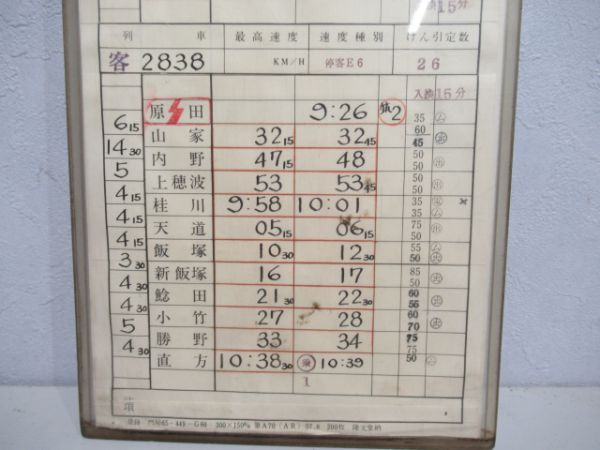 15分
列 車 最高速度 速度種別 けん引定数
客 2838 KM/H 停客E6 26
入換15分
原 田 9:26 2 35
6 15 60
山 家 32 15 32 45 45
14 30 50
内 野 47 15 48 50
5 50
上穂波 53 53 45 50
4 15 35
桂 川 9:58 10:01 35 ×
4 15 75
天 道 05 15 06 15 50
4 15 55
飯 塚 10 30 12 30 50
3 30 85
新飯塚 16 17 50
4 30 60
鯰 田 21 30 22 30 55
4 30 60
小 竹 27 28 70
5 75
勝 野 33 34 75
4 30 50
直 方 10:38 30 10:39
1